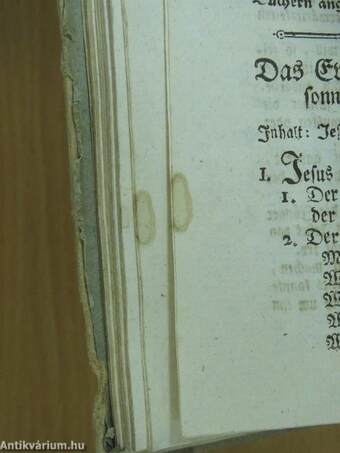 Büchern ang
Das Ev
sonn
Inhalt: Jes
I. Jesus
1. Der
der
2. Der
M
A
M
A
M
Antikvárium.hu